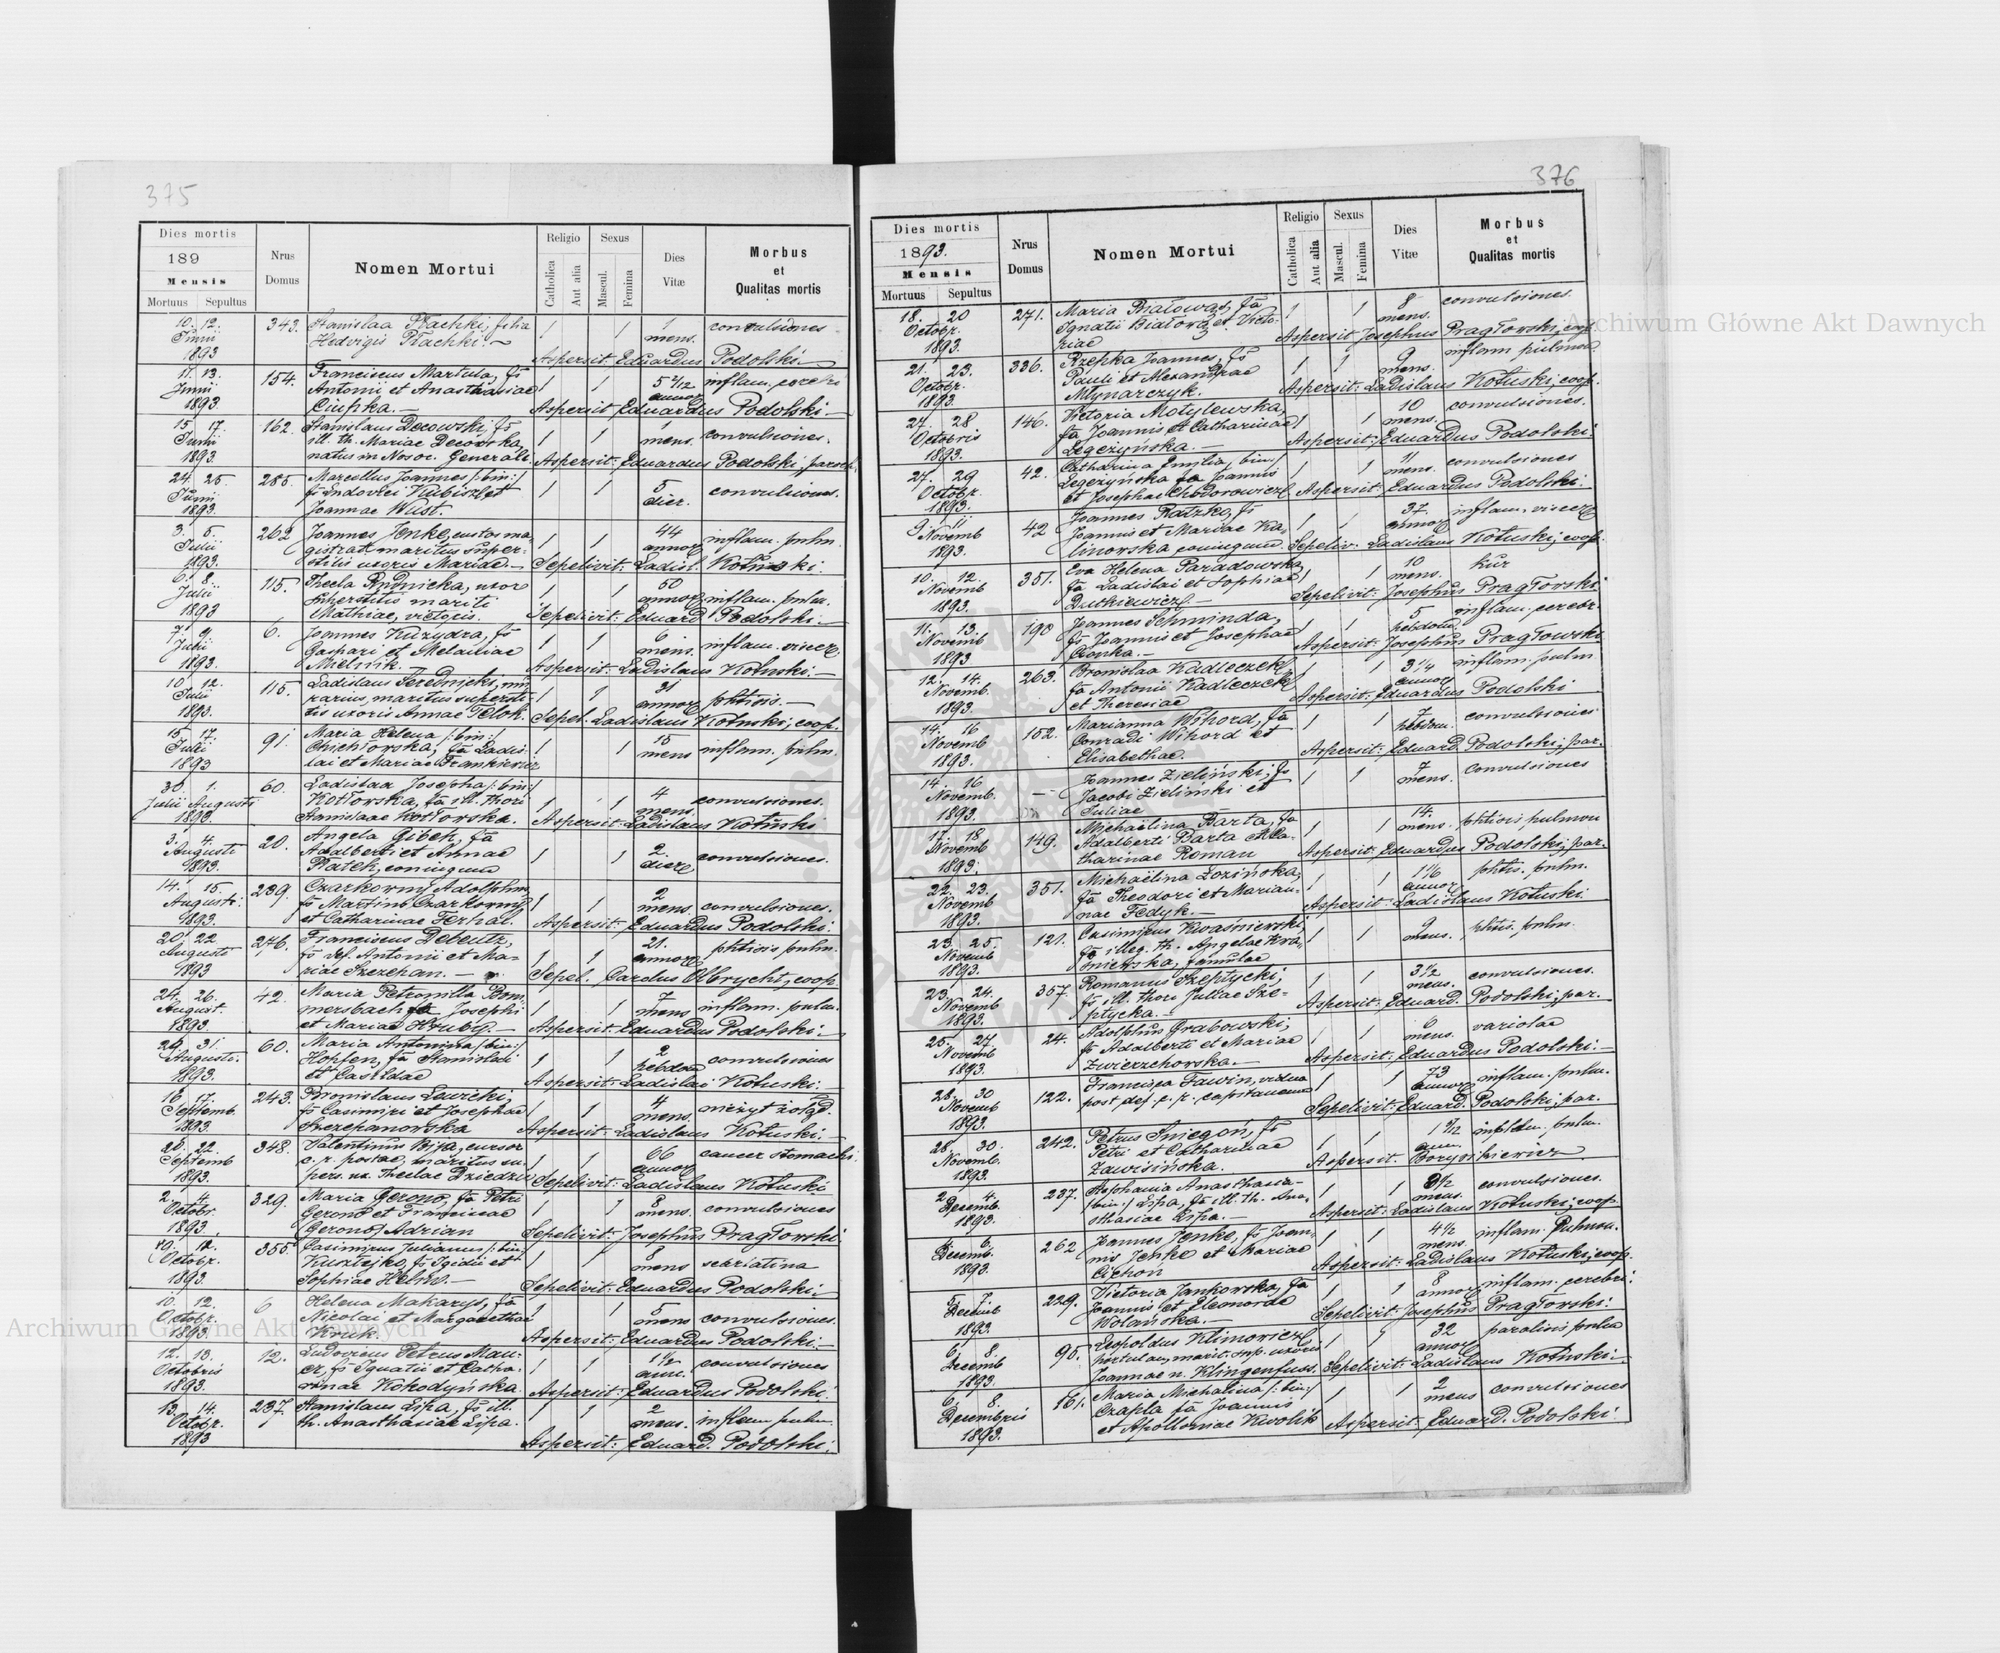 375
Dies mortis
189
Mensis
Mortuus Sepultus
Nrus
Domus
Nomen Mortui
Religio
Catholica
Aut alia
Sexus
Mascul.
Femina
Dies
Vitæ
Morbus
et
Qualitas mortis
10. 12.
Junii
1893
343.
Stanislaa Ptachki, filia
Hedvigis Ptachki.
1 1
1
mens.
convulsiones
Aspersit Eduardus Podolski
11. 13.
Junii
1893.
154.
Franciscus Martula, fs
Antonii et Anastasiae
Ciupka.
1 1
5 1/12
annor
inflam. cerebri
Aspersit Eduardus Podolski.
15 17.
Junii
1893
162.
Stanislaus Decowski, fs
ill. th. Mariae Decowska,
natus in Nosoc. Generali.
1 1
1
mens.
convulsiones.
Aspersit: Eduardus Podolski, paroch.
24. 25.
Junii
1893.
285.
Marcellus Joannes /:bin:/
fs Ludovici Kubiszlet
Joannae Wust.
1 1
5
dier.
convulsiones.
3. 5.
Julii
1893.
262
Joannes Jenke, custos ma-
gistrat. maritus super-
stitis uxoris Mariae.
1 1
44
annor
inflam. pulm.
Sepelivit: Ladisl. Kotuski
6. 8.
Julii
1893
115.
Thecla Rudnicka, uxor
superstitis mariti
Mathiae, victoris.
1 1
50
annor
inflam. pulm.
Sepelivit: Eduard Podolski.
7. 9.
Julii
1893.
6.
Joannes Kuzydra, fs
Gaspari et Melaniae
Mielnik.
1 1
6
mens.
inflam. viscer.
Aspersit: Ladislaus Kotuski.
10 12.
Julii
1893.
115.
Ladislaus
rarius, maritus supersti-
tis uxoris Annae Telok.
1 1
31
annor
phtisis.
Sepel. Ladislaus Kotuski, coop.
15 17.
Julii
1893
91.
Maria Helena /:bin:/
Chichłowska, fa Ladis-
lai et Mariae Frankiewicz
1 1
15
mens
inflam. pulm.
30. 1.
Julii Augusti
1893.
60.
Ladislaa Josepha /:bin:/
Kotłowska, fa ill. thori
Stanislaae Kotłowska.
1 1
4
mens.
convulsiones.
Aspersit: Ladislaus Kotuski
3. 4.
Augusti
1893.
20.
Angela Gibek, fa
Adalberti et Annae
Ptatek, coniugum
1 1
2
dier
convulsiones.
14. 15.
Augusti.
1893.
239.
Czarkowny Adolphus,
fs Martini Czarkowny
et Catharinae Terhal.
1 1
2
mens.
convulsiones.
Aspersit: Eduardus Podolski.
20. 22
Augusti
1893
276.
Franciscus Debeutz,
fs def. Antonii et Ma-
riae Szczepan.
1 1
21.
annor
phtisis pulm.
Sepel. Carolus Olbrycht, coop.
24. 26.
August.
1893.
42.
Maria Petronilla Bom-
mersbach, fa Josephi
et Mariae Hruby.
1 1
7
mens
inflam. pulm.
Aspersit: Eduardus Podolski.
29. 31.
Augusti.
1893.
60.
Maria Antonina /:bin:/
Hopfen, fa Stanislai
et Casildae
1 1
2
hebdom
convulsiones
Aspersit: Ladislai Kotuski.
16. 17.
Septemb.
1893
243.
Bronislaus Lewicki,
fs Casimiri et Josephae
Szczepanowska
1 1
4
mens.
nieżyt żołąd.
Aspersit: Ladislaus Kotuski.
20. 22.
Septemb
1893.
348.
Valentinus Bifa, cursor
c. r. postae, maritus su-
pers. ux. Theclae Dziedzic
1 1
66
annor
cancer stomachi.
Sepelivit: Ladislaus Kotuski
2. 4.
Octobr.
1893
329.
Maria Gerono, fa Petri
Gerono et Franciscae
(Gerono) Adrian
1 1
8
mens.
convulsiones
Sepelivit: Josephus Pragłowski.
10. 12.
Octobr.
1893
355.
Casimirus Julianus /:bin:/
Kusztejko, fs Igidii et
Sophiae Helms.
1 1
8
mens
scarlatina
Sepelivit: Eduardus Podolski.
10. 12.
Octobr.
1893.
6
Helena Makarys, fa
Nicolai et Margarethae
Kruk.
1 1
5
mens
convulsiones.
Aspersit: Eduardus Podolski.
12. 13.
Octobris
1893.
12.
Ludovicus Petrus Mau-
er, fs Ignatii et Catha-
rinae Kokodyńska.
1 1
1 1/2
ann.
convulsiones
Aspersit: Eduardus Podolski.
13. 14.
Octobr.
1893
237.
Stanislaus Lipa, fs ill.
th. Anasthasiae Lipa.
1 1
2
mens.
inflam pulm.
Aspersit: Eduard. Podolski.
376
Dies mortis
1893.
Mensis
Mortuus Sepultus
Nrus
Domus
Nomen Mortui
Religio
Catholica
Aut alia
Sexus
Mascul.
Femina
Dies
Vitæ
Morbus
et
Qualitas mortis
18. 20
Octobr.
1893.
271.
Maria Białowąs, fa
Ignatii Białowąs et Victo-
riae
1 1
8
mens.
convulsiones.
Aspersit: Josephus Pragłowski, coop.
21. 23.
Octobr.
1893.
336.
Rzepka Joannes, fs
Pauli et Alexandrae
Młynarczyk.
1 1
9
mens.
inflam pulmon.
Aspersit: Ladislaus Kotuski, coop.
27. 28
Octobris
1893.
146.
Victoria Motylewska,
fa Joannis et Catharinae
Legeżyńska.
1 1
10
mens.
convulsiones.
Aspersit: Eduardus Podolski.
27. 29
Octobr.
1893.
42.
Catharina Emilia /:bin:/
Legeżyńska fa Joannis
et Josephae Chodorowicz
1 1
11
mens.
convulsiones
Aspersit: Eduardus Podolski.
9 11
Novemb
1893.
42
Joannes Ratzko, fs
Joannis et Mariae Ka-
linowska coniugum.
1 1
37.
annor
inflam. viscer
Sepeliv. Ladislaus Kotuski, coop.
10. 12.
Novemb
1893.
351.
Eva Helena Paradowska,
fa Ladislai et Sophiae
Dutkiewicz
1 1
10
mens.
kur
Sepelivit: Josephus Pragłowski
11. 13.
Novemb
1893
190
Joannes Schminda,
fs Joannis et Josephae
Czonka.
1 1
5
hebdom.
inflam. cerebr.
Aspersit: Josephus Pragłowski
12. 14.
Novemb.
1893.
263.
Bronislaa Kadleczek,
fa Antonii Kadleczek
et Theresiae
1 1
3 1/4
annor
inflam. pulm
Aspersit: Eduardus Podolski
14. 16
Novemb
1893.
152.
Marianna Wihord, fa
Conradi Wihord et
Elisabethae.
1 1
7
hebdom.
convulsiones
Aspersit: Eduard. Podolski, par.
14 16
Novemb.
1893.
Joannes Zieliński, fs
Jacobi Zieliński et
Juliae
1 1
7
mens.
convulsiones
17. 18
Novemb
1893.
149.
Michaëlina Barta, fa
Adalberti Barta et Ca-
tharinae Roman
1 1
14.
mens.
phtisis pulmon
Aspersit: Eduardus Podolski, par.
22. 23.
Novemb
1893.
351.
Michaëlina Łozińska,
fa Theodori et Marian-
nae Fedyk.
1 1
1 1/6
annor
phtis. pulm.
Aspersit: Ladislaus Kotuski
23. 25.
Novemb
1893.
121.
Casimirus Kwaśniewski,
fs illeg. th. Angelae Kwa-
śniewska, famulae
1 1
9
mens.
phtis. pulm.
23. 24.
Novemb
1893.
357.
Romanus Szeptycki,
fs ill. thori Juliae Sze-
ptycka.
1 1
3 1/2
mens.
convulsiones.
Aspersit: Eduard. Podolski, par.
25. 27.
Novemb
1893.
24.
Adolphus Grabowski,
fs Adalberti et Mariae
Zwierzchowska.
1 1
6
mens.
variolae
Aspersit: Eduardus Podolski.
28. 30
Novemb
1893.
122.
Francisca Fawin, vidua
post def. c. r. capitaneum
1 1
73
annor
inflam. pulm.
Sepelivit: Eduard. Podolski, par.
28. 30.
Novemb.
1893.
242.
Petrus Sniegoń, fs
Petri et Catharinae
Zawisińska.
1 1
ann.
inflam. pulm.
Aspersit. Borysikiewicz
2. 4.
Decemb.
1893.
237.
Stephania Anasthasia
/:bin:/ Lipa, fa ill. th. Ana-
sthasiae Lipa.
1 1
3 1/2
mens.
convulsiones.
Aspersit: Ladislaus Kotuski, coop
4. 6.
Decemb.
1893.
262
Joannes Jenke, fs Joan-
nis Jenke et Mariae
Cichoń
1 1
4 1/2
mens.
inflam. Pulmon.
Aspersit: Ladislaus Kotuski, coop.
5. 7.
Decemb
1893.
229.
Victoria Jankowska, fa
Joannis et Eleonorae
Wolańska.
1 1
8
annor
inflam. cerebri.
Sepelivit: Josephus Pragłowski.
6. 8.
Decemb
1893.
95.
Leopoldus Klimowicz
postulans, marit. sup. uxoris
Joannae n. Klingenfuss.
1 1
32
annor
paralisis pulm
Sepelivit: Ladislaus Kotuski
6. 8.
Decembris
1893.
161.
Maria Michalina /:bin:/
Czapla fa Joannis
et Apolloniae Kwolik
1 1
2
mens
convulsiones
Aspersit: Eduard. Podolski.
Archiwum Główne Akt Dawnych
Archiwum Główne Akt Dawnych